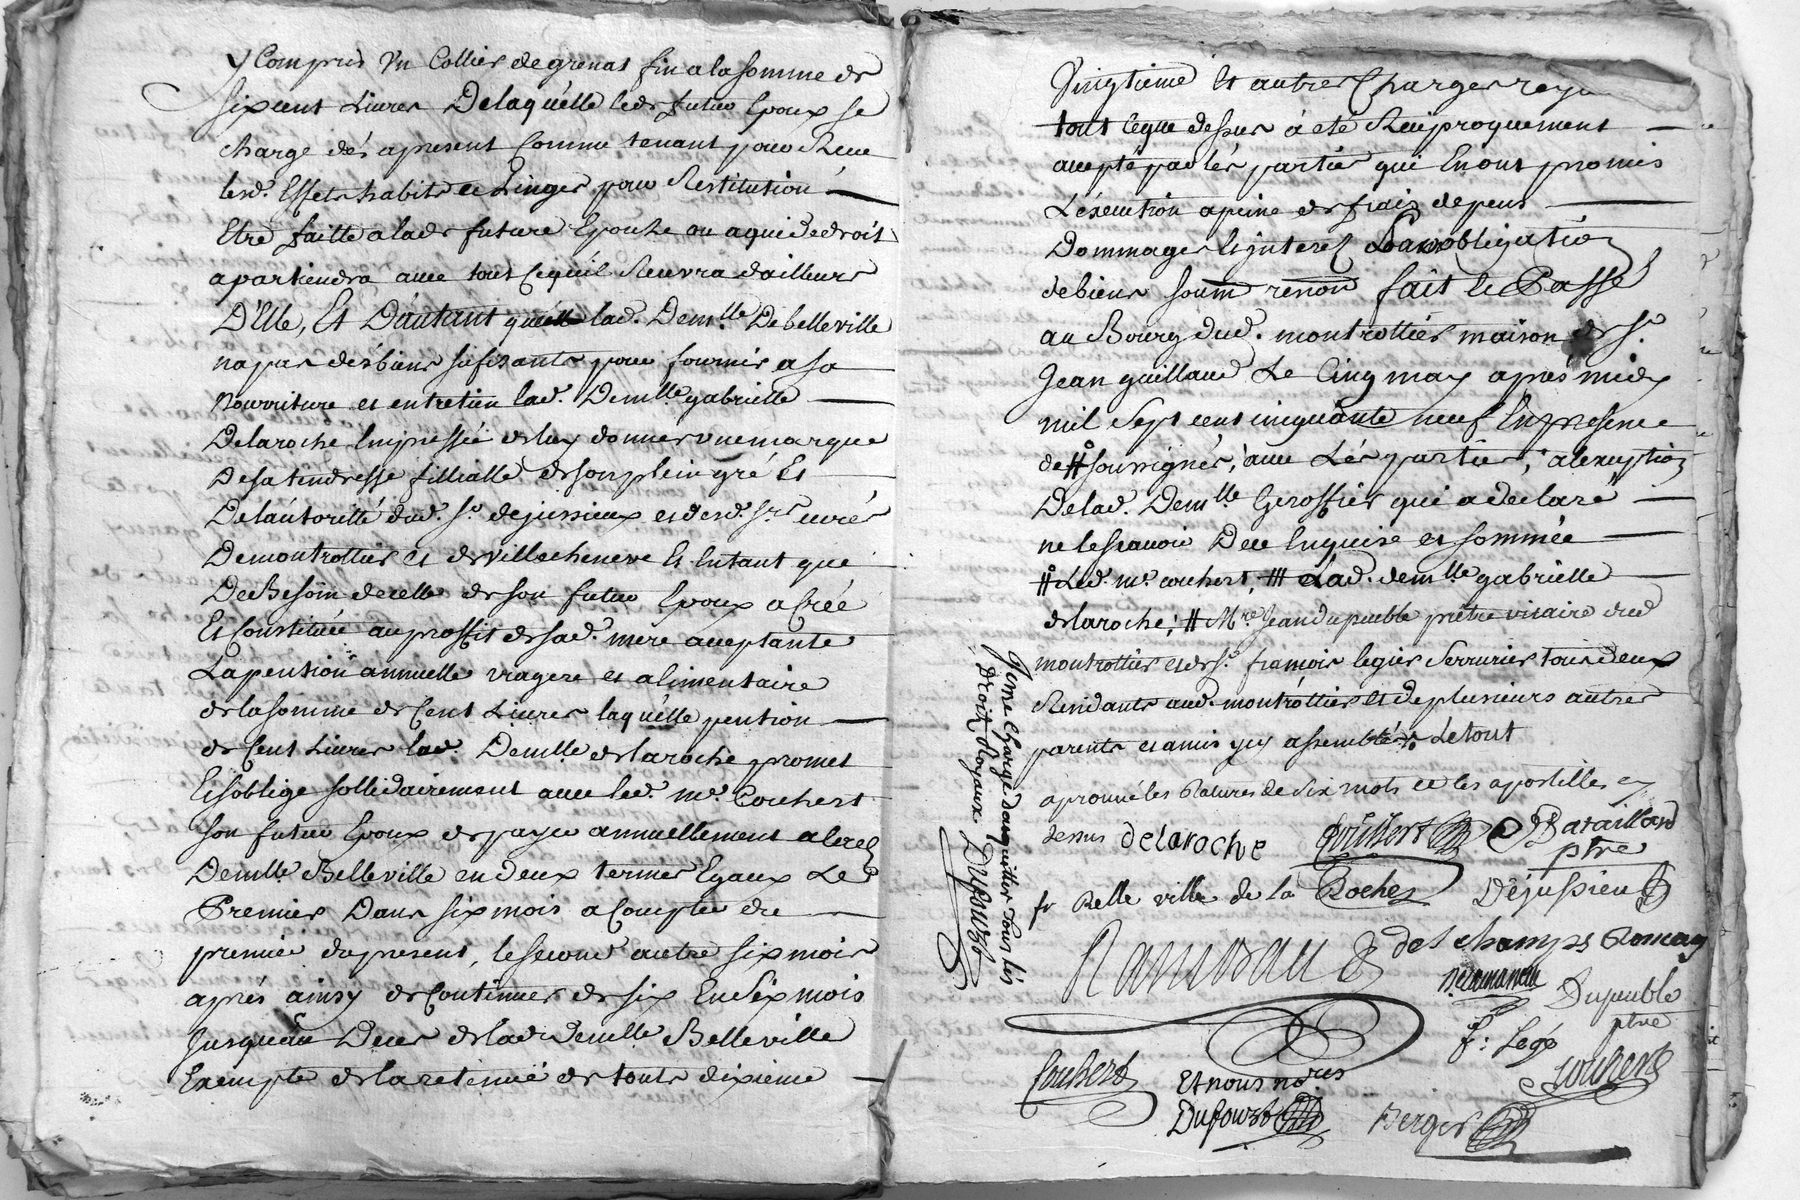 y Compris Un Collier de grenat fin a la somme de
six cent Livres De laquelle led. futur Epoux se
charge dés apresent Comme tenant pour Reçeu
lesd. Effets habits et Linges pour Restitution
Etre faitte a lad. future Epouse ou a qui de droit
apartiendra avec tout Cequil Recevra dailleurs
D'Elle, Et D'autant que lad. Demlle. De belleville
na pas des biens sufisants pour fournir a sa
nourriture et entretien lad. Demlle. gabrielle
Delaroche Empressée de luy donner une marque
De sa tendresse fillialle de son plein gré Et
De lautorité dud. Sr. dejussieux et desd. Srs curés
De montrottier et de villecheneve Et Entant que
De Besoin de celle de son futur Epoux a Créé
Et Constitué au proffit de sad. mere acceptante
La pention annuelle viagere et alimentaire
de la somme de Cent Livres laquelle pention
de Cent Livres lad. Demlle. de laroche promet
Et soblige sollidairement avec led. me. Couhert
son futur Epoux de payer annuellement a
Demlle. Belleville en deux termes Egaux Le
Premier Dans six mois a Compter du
premier du present, le second autre six mois
aprés ainsy de Continuer de six En Six mois
Jusqu'au Deces de lad. demlle Belleville
Exempte de la retenue de touts dixieme
Vingtieme Et autres Charges
tout ceque dessus a eté Reciproquement
accepté par les parties qui En ont promis
L'execution a peine de frais depens
Dommages Et jnterets Par obligation
de biens soum renon fait et Passé
au Bourg dud. montrottier maison de Sr.
Jean guillaud Le Cinq may apres midy
mil Sept cent cinquante neuf En presence
de # soussignés, avec Les parties, a l'exception
De lad. Demlle Geroffier qui a declaré
ne le scavoir De ce Enquise et sommée
# Led. me. couhert, # Lad. demlle. gabrielle
de laroche; # Mre. Jean dupeuble prêtre vicaire dud
montrottier et de Sr. francois legier Serrurier tous deux
Residants aud. montrottier Et de plusieurs autres
parents et amis y assemblés Le tout
aprouvé les Ratures de Six mots et les apostilles cy
dessus delaroche Couhert Bataillard
ptre
fr Belle ville de la Roche Dejussieu
Ramadau deschamps Romany
Dupeuble
ptre
f: Legé
Couhert
Couhert
Et nous nores
Dufourt Berger
Jeme Charge dacquitter Tous les
Droits Royaux Dufourt